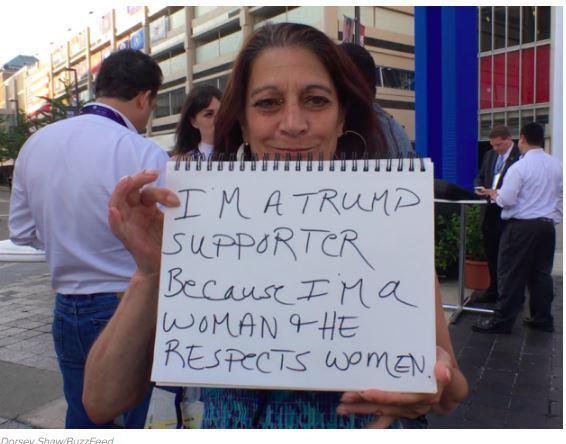 I'M A TRUMP
SUPPORTER
Because I'M a
WOMAN & HE
RESPECTS WOMEN.
Dorsey Shaw/BuzzFeed